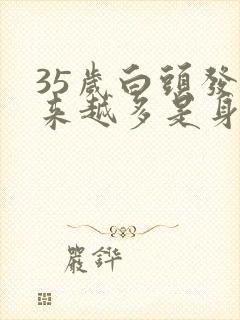 35歲白頭發
來越多是身
嚴鏵